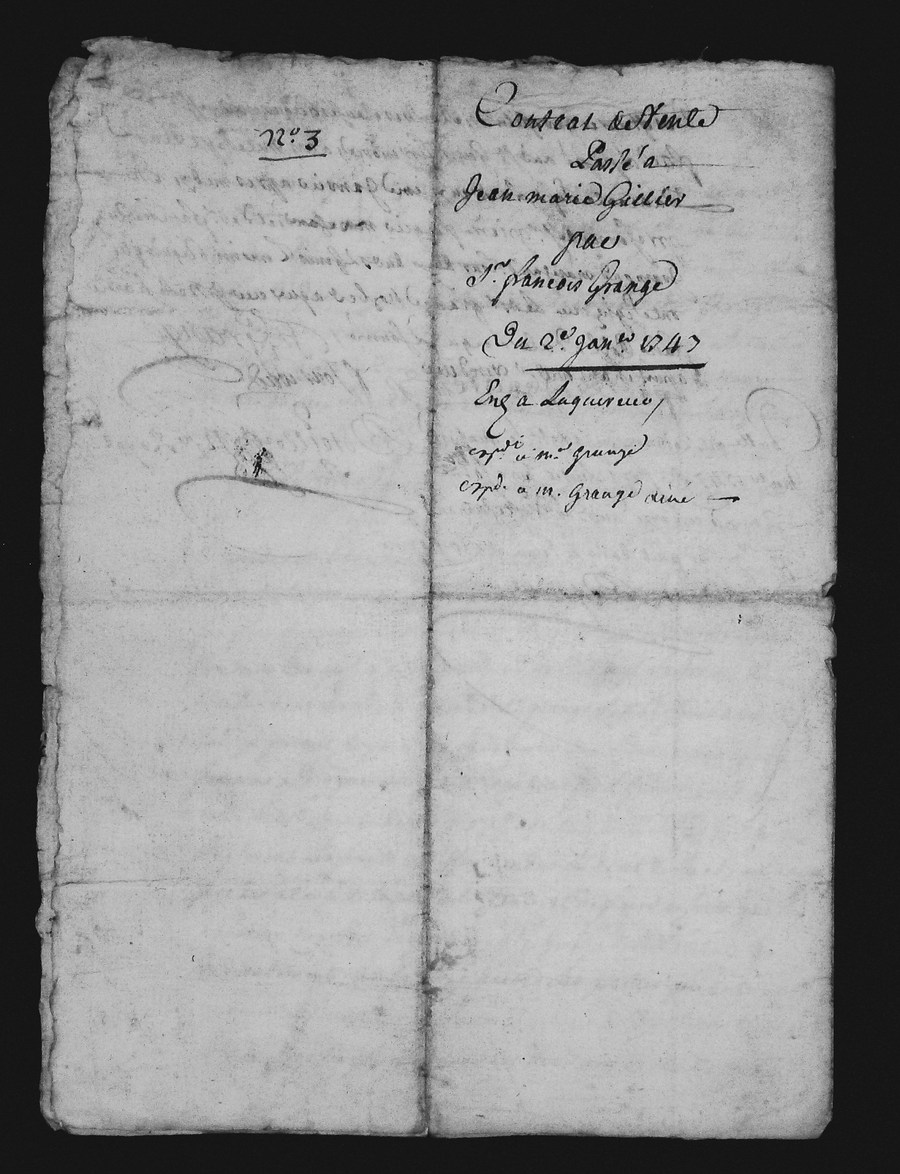 N.º 3
Contrat de Vente
Passé a
Jean marie Gillier
par
S.r francois Grange
Du 2.e Janer 1747
Enz a
expd. a m.r grange
expd. a m. Grange